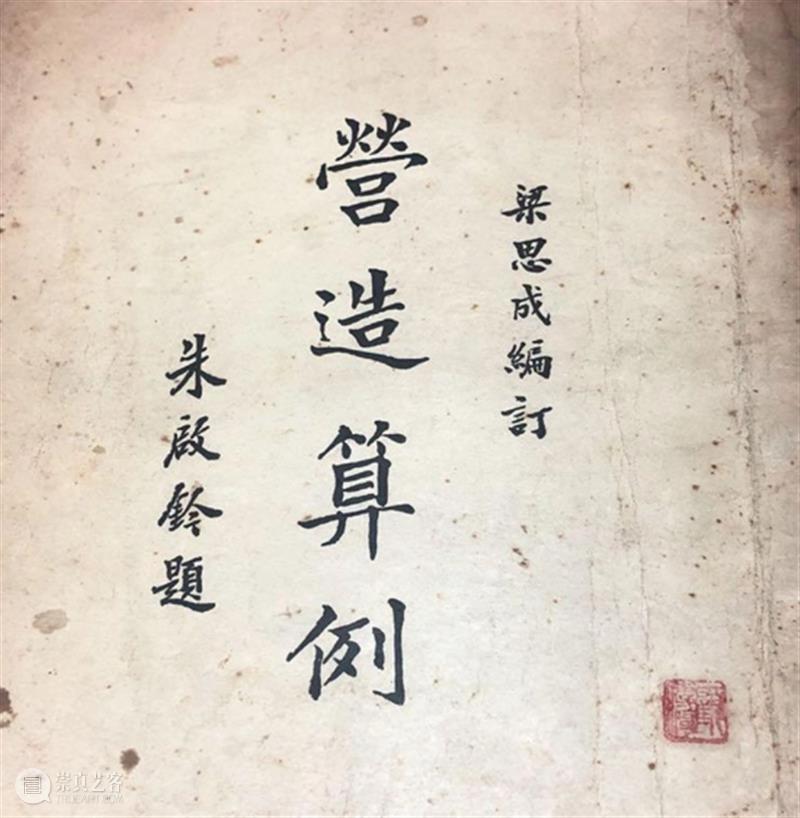 梁思成編訂
營造算例
朱啟鈐題
崇真艺客
TRUEART.COM